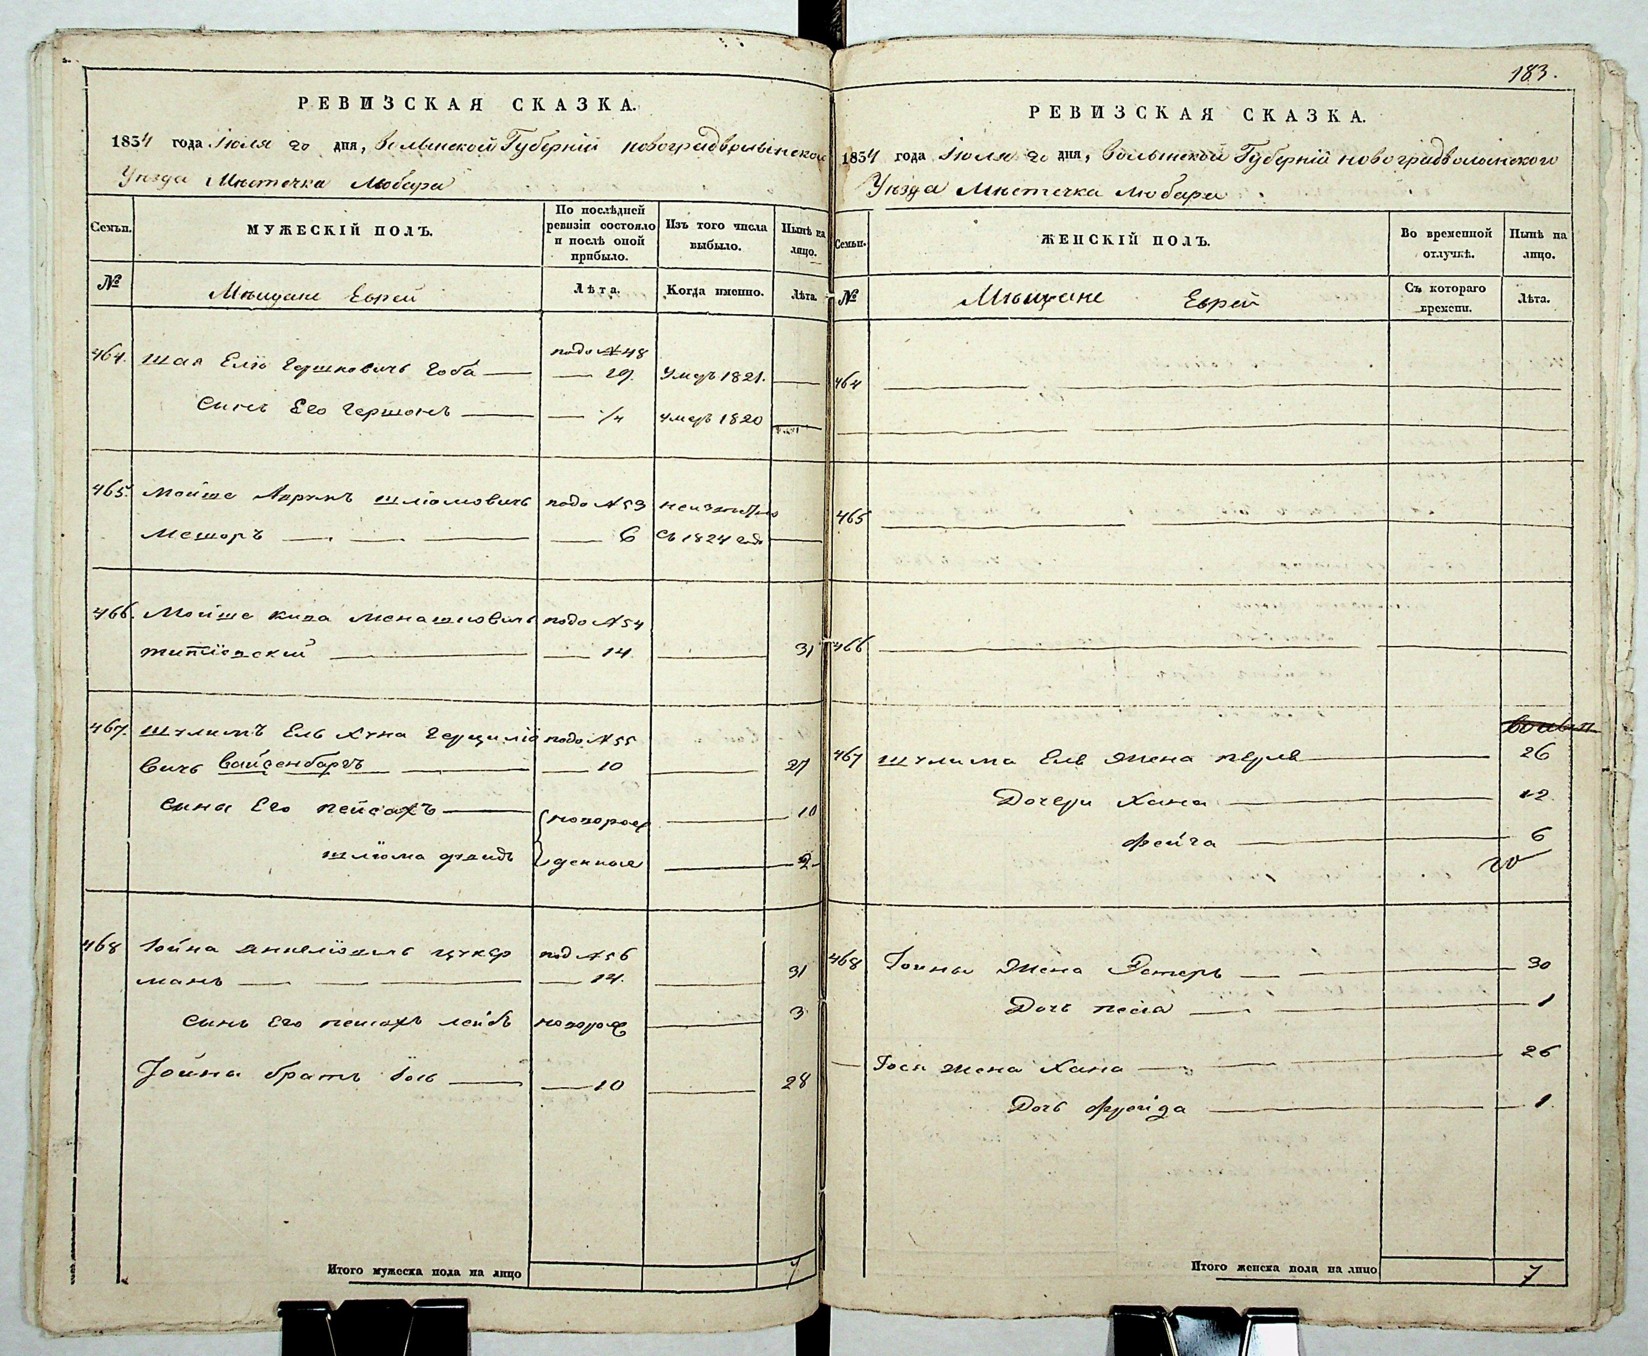 РЕВИЗСКАЯ СКАЗКА.
1854 года Іюля 20 дня, Волынской Губерніи Новоградволынского
Уезда Местечка Любара
Семьи.
МУЖЕСКІЙ ПОЛЪ.
По послѣдней
ревизіи состояло
и послѣ оной
прибыло.
Изъ того числа
выбыло.
Нынѣ на
лицо.
№
Мещане Евреи
Лѣта.
Когда именно.
Лѣта.
464. Шая Елio Гершковичъ Гоба подъ №48
29. умеръ 1821.
Синъ Его Гершонъ 1/4 умеръ 1820
465. Мойше Аврумъ Шліомовичъ подъ №53
Мешоръ 6 съ 1824 года
466. Мойше Кива Менашковичъ подъ №54
14 31
467. Шулимъ Ель Хуна подъ №55
вичъ Вайсенбаргъ 10 27
Сина Его Пейсахъ новорож 10
Шліома денные 2
468 Іойна Янкеліовичъ Цукер под №56
манъ 14. 31
Синъ Его Пейсахъ Лейбъ новорож 3
Іойни братъ Іось 10 28
Итого мужеска пола на лицо 7
183.
РЕВИЗСКАЯ СКАЗКА.
1854 года Іюля 20 дня, Волынской Губерніи Новоградволынского
Уезда Местечка Любара
Семьи.
ЖЕНСКІЙ ПОЛЪ.
Во временной
отлучкѣ.
Нынѣ на
лицо.
№
Мещане Евреи
Съ котораго
времени.
Лѣта.
464
465
466
467 Шулима Еля Жена Перля 26
Дочери Хана 12
Фейга 6
468 Іойны Жена Эстеръ 30
Дочь Песія 1
Іося жена Хана 26
Дочь Фройда 1
Итого женска пола на лицо 7